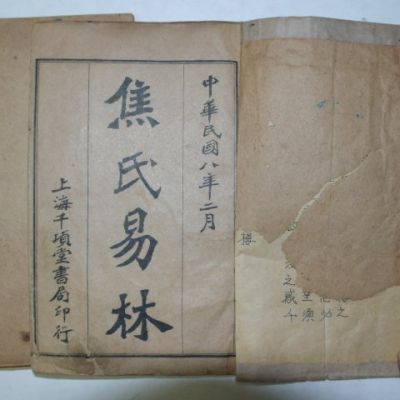 中華民國八年二月
焦氏易林
上海千頃堂書局印行
之
之
之歲千